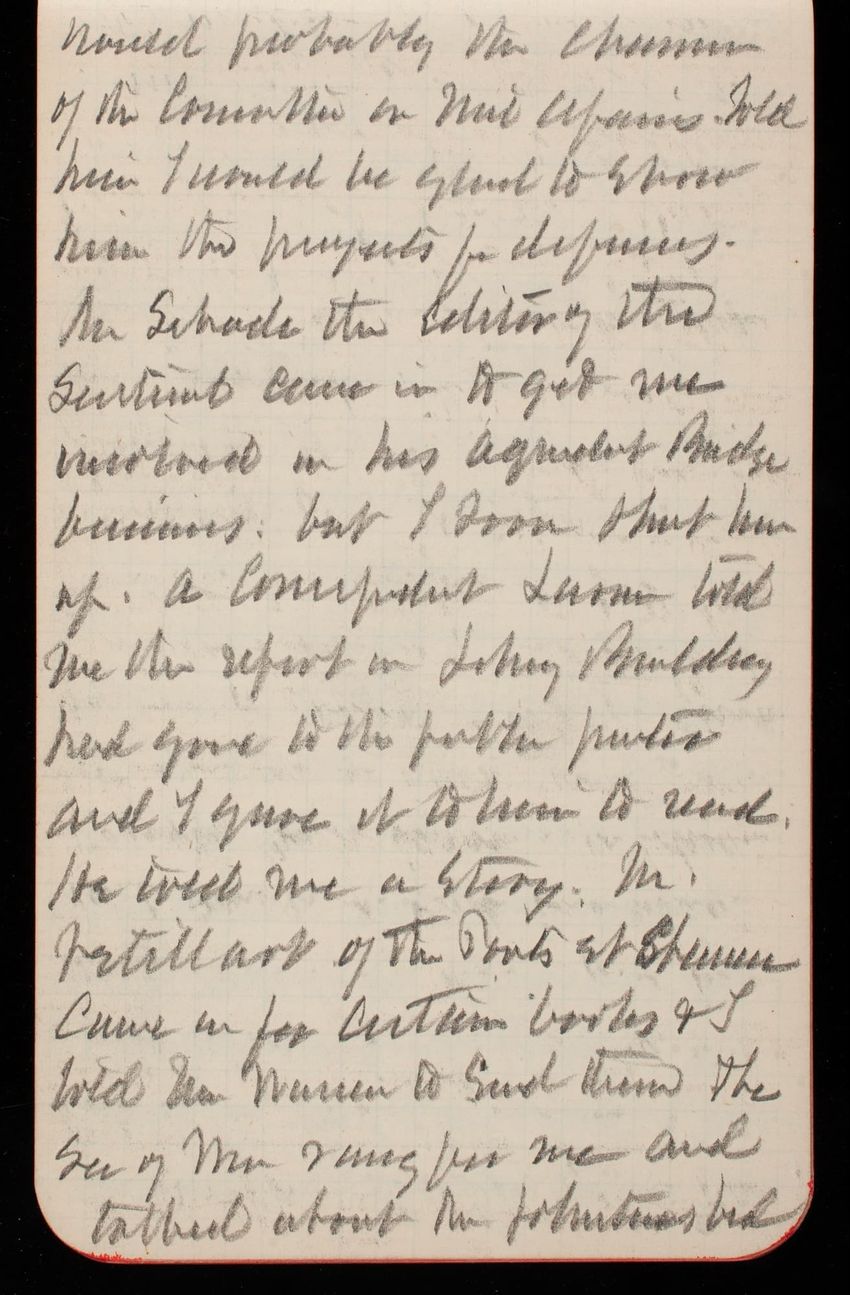 would probably the Chairman
of the Committee on Mil Affairs. Told
him I would be glad to show
him the projects for defenses.
Mr Schade the editor of the
Sentinel came in to get me
involved in his Aqueduct Bridge
business. but I soon shut him
up. A Correspondent told
me the report on Library Building
had gone to the public printer
and I gave it to him to read.
He told me a story. Mr.
of the Ports et
Came in for certain books & I
told Mr Warren to send them The
Sec of War rang for me and
talked about the bid